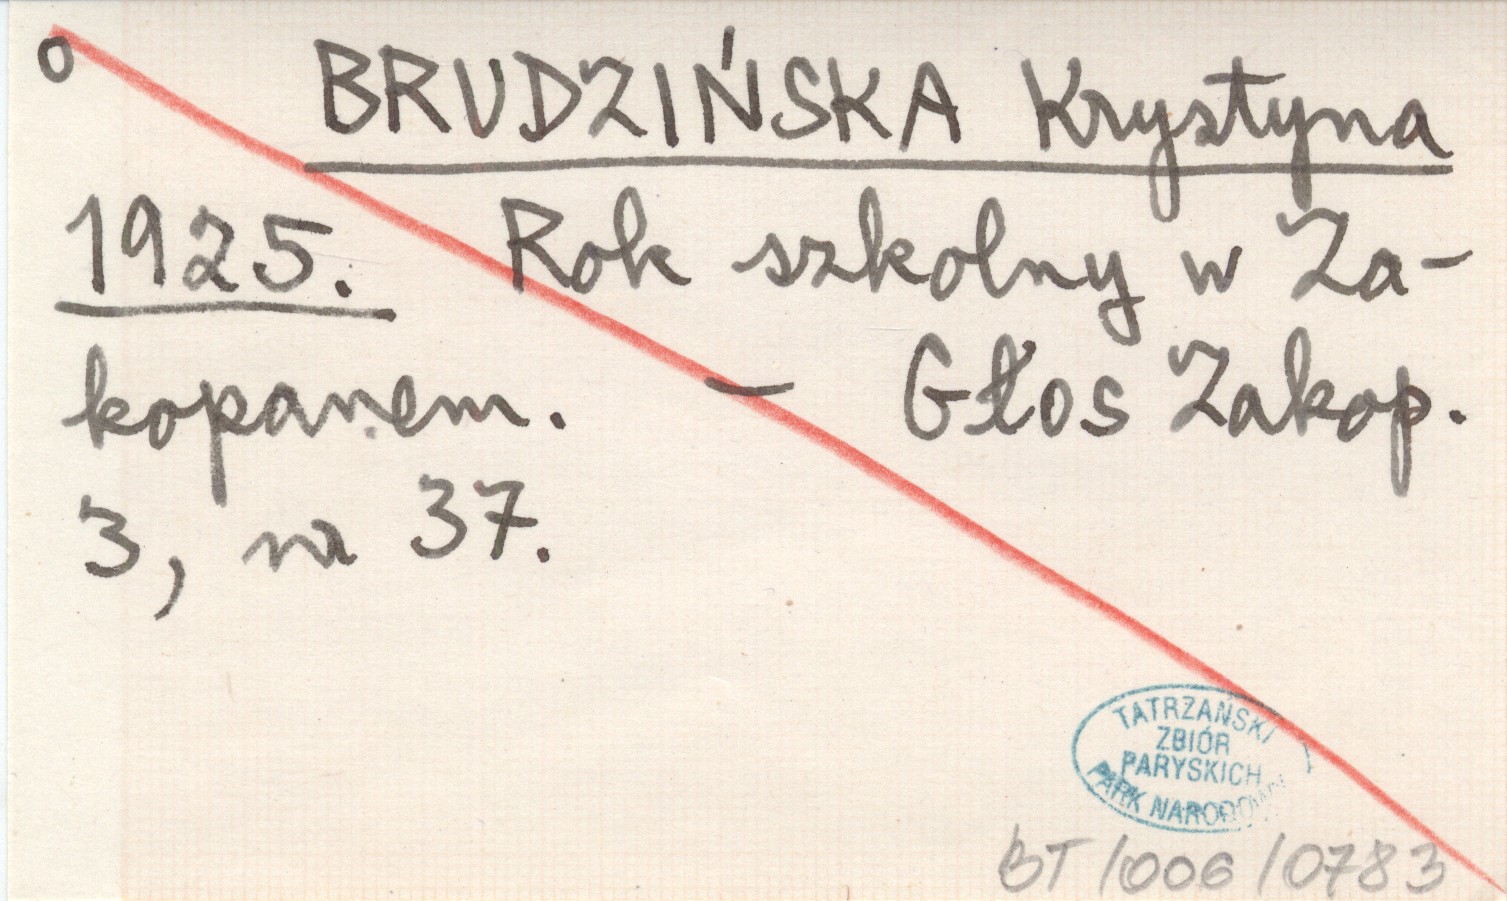 o BRUDZIŃSKA Krystyna
1925. Rok szkolny w Za-
kopanem. – Głos Zakop.
3, nr 37.
TATRZAŃSKI
ZBIÓR
PARYSKICH
PARK NARODOWY
BT/006/0783